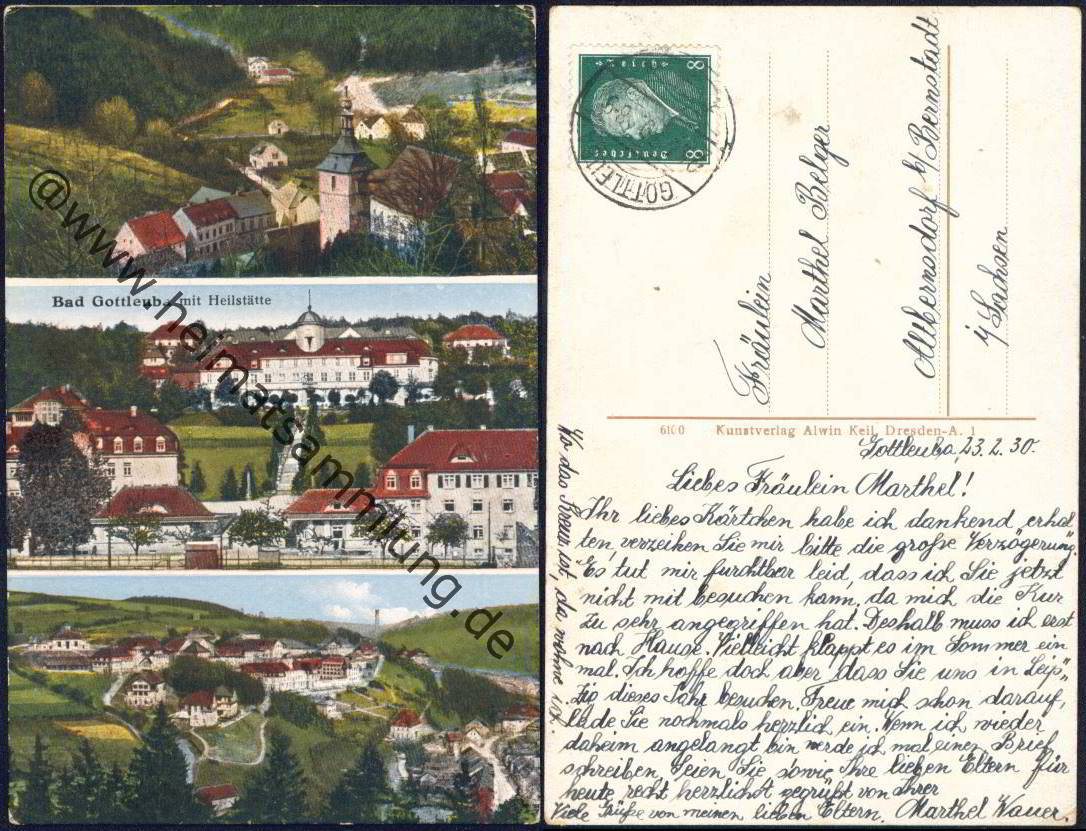 Bad Gottleuba mit Heilstätte
@www.heimatsammlung.de
8 8
Deutsches
GOTTLEU
Fräulein
Marthel Belger
Altbernsdorf b/Bernstadt
i/Sachsen
6100 Kunstverlag Alwin Keil, Dresden-A. 1
Gottleuba, 23.2.30.
Liebes Fräulein Marthel!
Ihr liebes Kärtchen habe ich dankend erhal
ten, verzeihen Sie mir bitte die große Verzögerung.
Es tut mir furchtbar leid, dass ich Sie jetzt
nicht mit besuchen kann, da mich die Kur
zu sehr angegriffen hat. Deshalb muss ich erst
nach Hause. Vielleicht klappt es im Sommer ein
mal. Ich hoffe doch aber, dass Sie uns in Leip„
zig dieses Jahr besuchen. Freue mich schon darauf,
lade Sie nochmals herzlich ein. Wenn ich wieder
daheim angelangt bin werde ich mal einen Brief
schreiben. Seien Sie sowie Ihre lieben Eltern für
heute recht herzlichst gegrüßt von Ihrer
Viele Grüße von meinen lieben Eltern. Marthel Wauer.
Wo das Kreuz ist, da wohne ich.